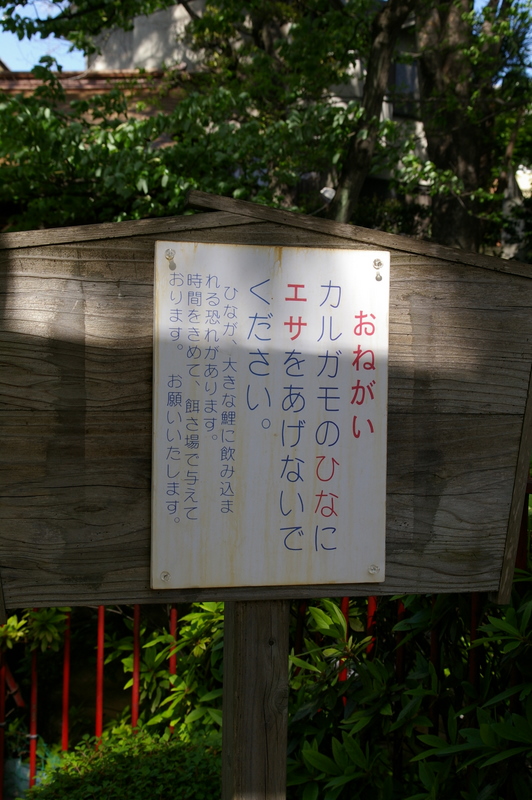 おねがい
カルガモのひなに
エサをあげないで
ください。
ひなが、大きな鯉に飲み込ま
れる恐れがあります。
時間をきめて、餌さ場で与えて
おります。 お願いいたします。